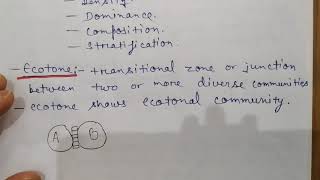 - Density.
- Dominance.
- Composition.
- Stratification.
- Ecotone:- transitional zone or junction
between two or more diverse communities
- ecotone shows ecotonal community.
A B